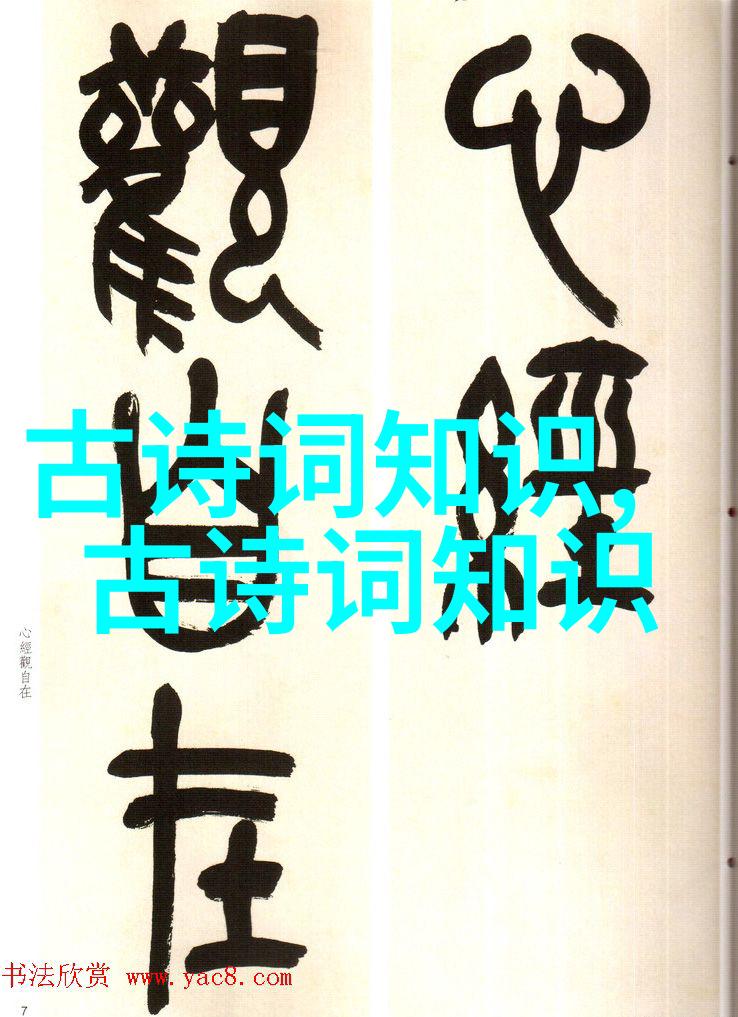 心經
觀自在
古诗词知识,
古诗词知识
心經觀自在
书法欣赏 www.yac8.com
7